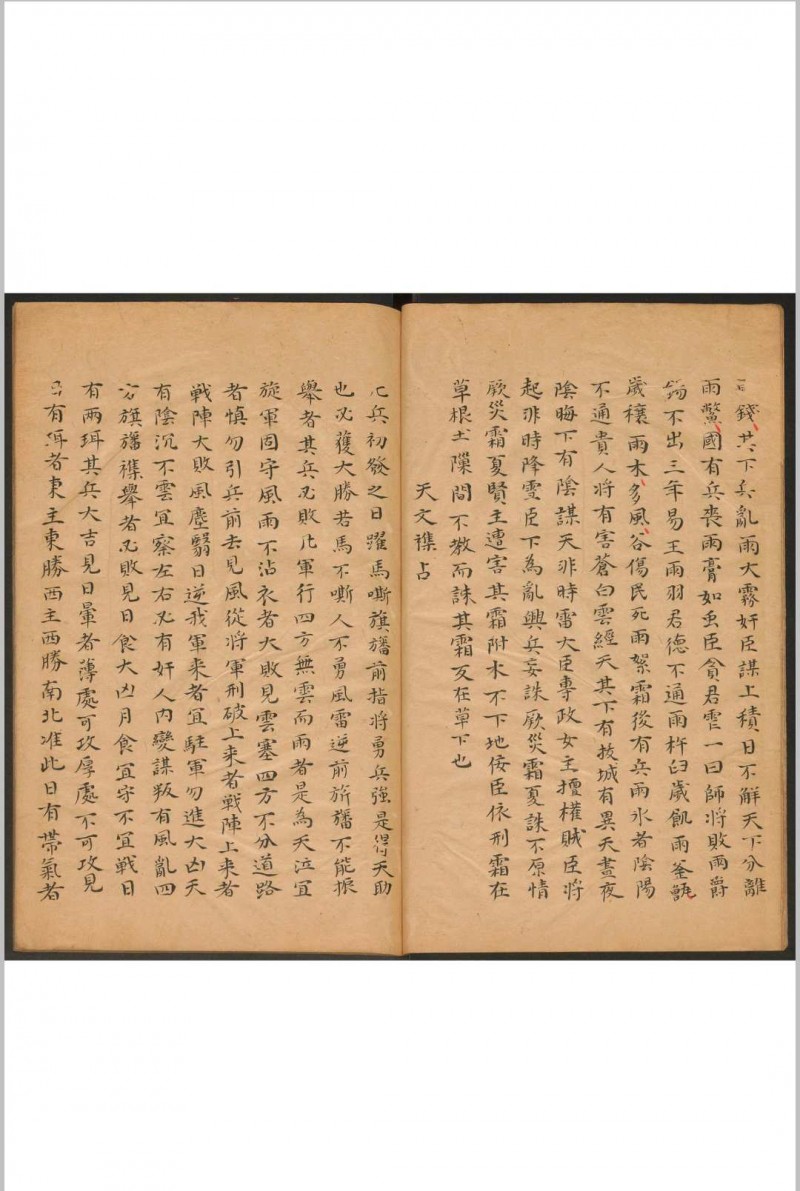 錢其下兵亂雨大霧奸臣謀上積日不解天下分離
雨鱉國有兵喪雨膏如虫臣貪君雫一曰師將敗雨爵
不出三年易王雨羽君德不通雨杵臼歲飢雨釜甑
歲穰雨木多風谷傷民死雨絮霜後有兵雨水者陰陽
不通貴人將有害蒼白雲經天其下有拔城有異天晝夜
陰晦下有陰謀天非時雷大臣專政女主擅權賊臣將
起非時降雪臣下為亂興兵妄誅厥災霜夏誅不原情
厥災霜夏賢主遭害其霜附木不下地佞臣依刑霜在
草根土隟間不教而誅其霜反在草下也
天文襍占
兵初發之日躍馬嘶旗旛前指將勇兵強是得天助
也必獲大勝若馬不嘶人不勇風雷逆前旂旛不能振
舉者其兵必敗凡軍行四方無雲而雨者是為天泣宜
旋軍固守風雨不沾衣者大敗見雲塞四方不分道路
者慎勿引兵前去見風從將軍刑破上来者戰陣上来者
戰陣大敗風塵翳日逆我軍来者宜駐軍勿進大凶天
有陰沉不雲宜察左右必有奸人內變謀叛有風亂四
方旗旛襍舉者必敗見日食大凶月食宜守不宜戰日
有兩珥其兵大吉見日暈者薄處可攻厚處不可攻見
有珥者東主東勝西主西勝南北准此日有帶氣者